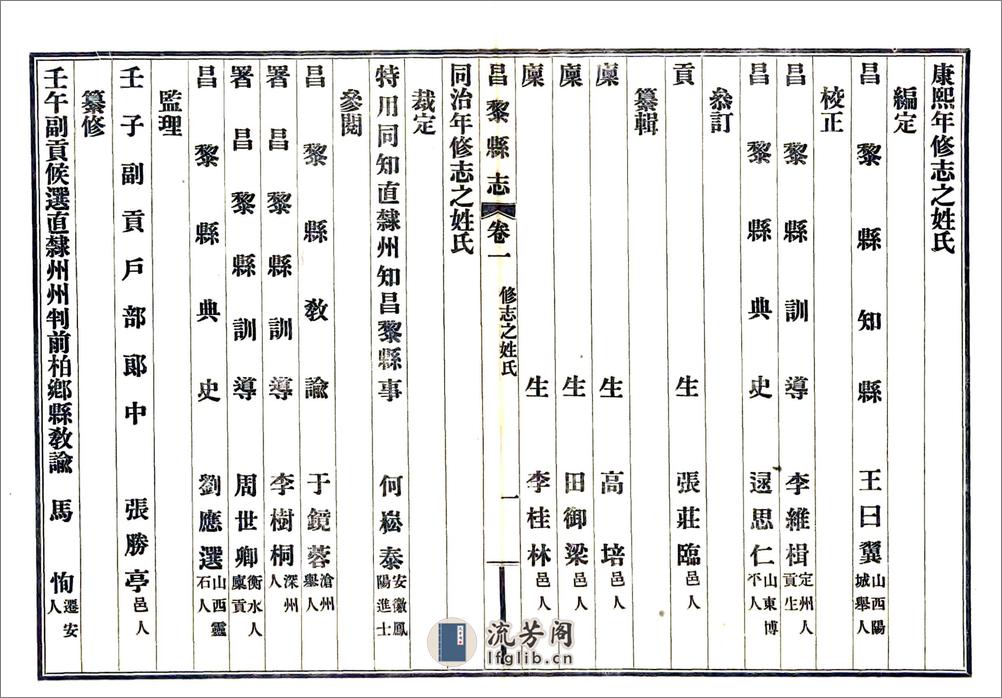 康熙年修志之姓氏
編定
昌黎縣知縣 王曰翼 山西陽城舉人
校正
昌黎縣訓導 李維楫 定州貢生
昌黎縣典史 逯思仁 山東博平人
參訂
貢生 張莊臨 邑人
纂輯
廩生 高培 邑人
廩生 田御梁 邑人
廩生 李桂林 邑人
昌黎縣志 卷一 修志之姓氏 一
同治年修志之姓氏
裁定
特用同知直隸州知昌黎縣事 何崧泰 安徽鳳陽進士
參閱
昌黎縣教諭 于鏡蓉 滄州舉人
署昌黎縣訓導 李樹桐 深州人
署昌黎縣訓導 周世卿 衡水人廩貢
昌黎縣典史 劉應選 山西靈石人
監理
壬子副貢戶部郎中 張勝亭 邑人
纂修
壬午副貢候選直隸州州判前柏鄉縣教諭 馬恂 遷安人
流芳阁
lfglib.cn